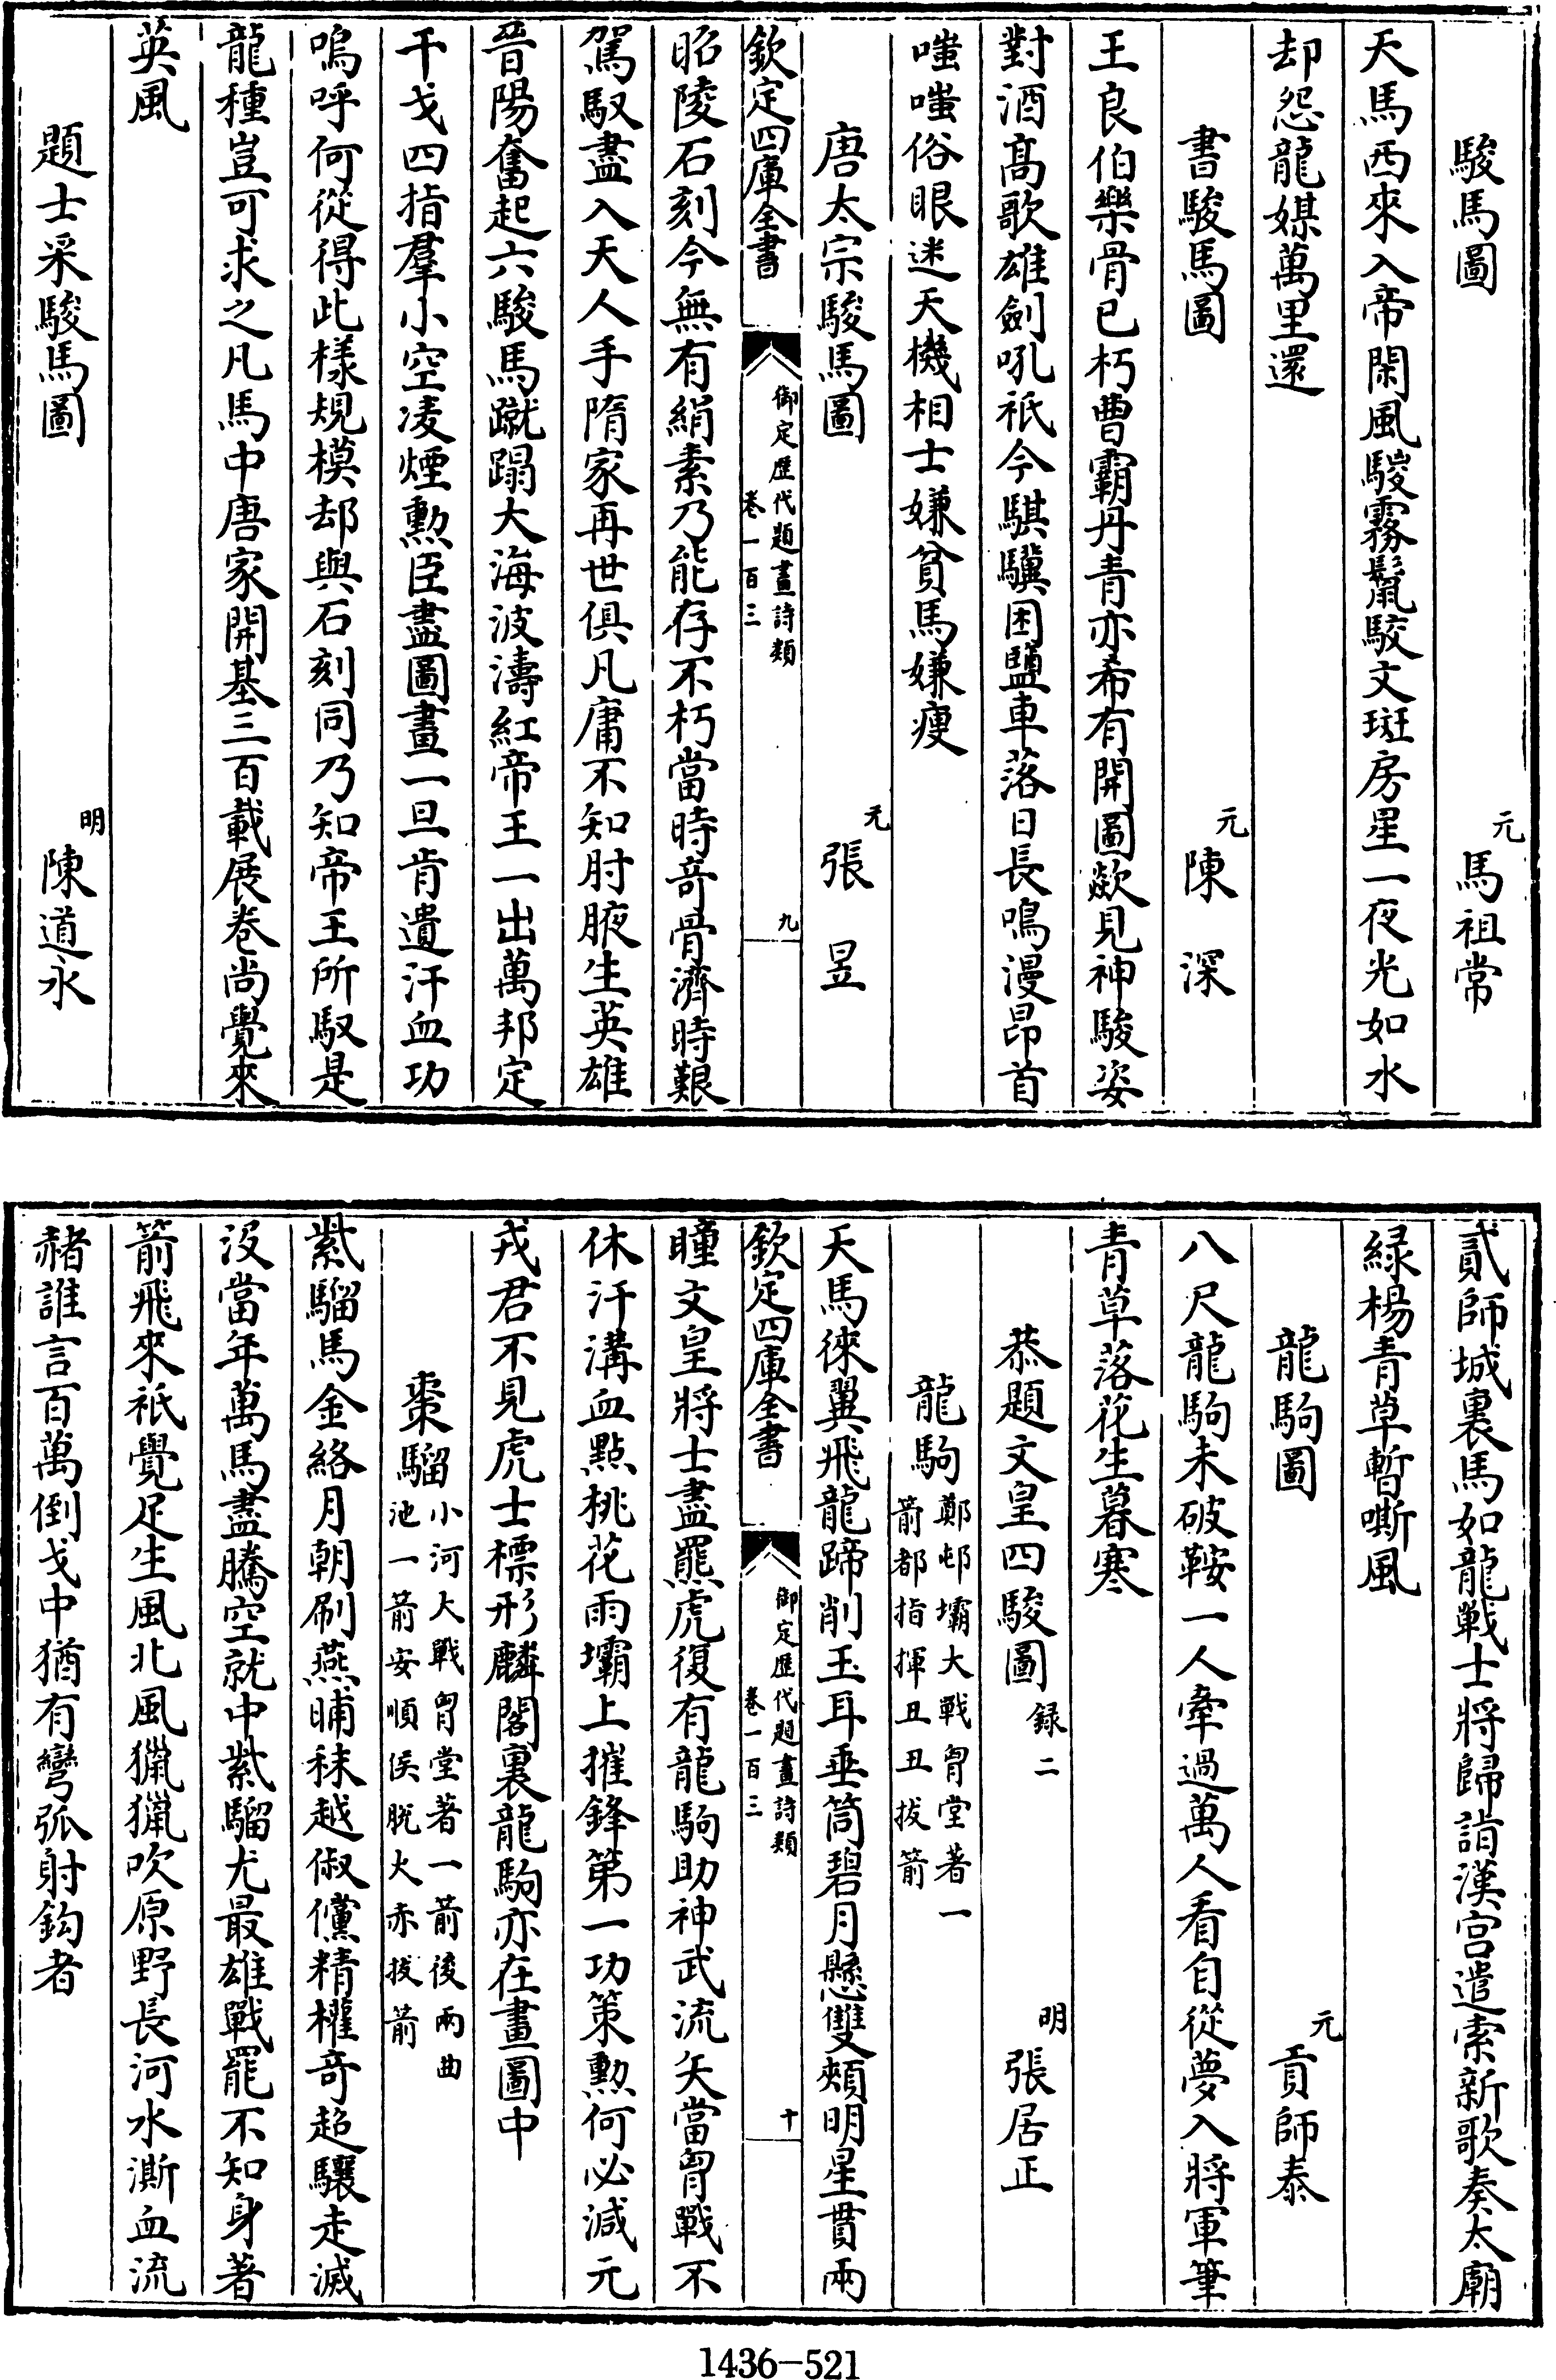 駿馬圖 元 馬祖常
天馬西來入帝閑風駿霧鬛駮文斑房星一夜光如水
却怨龍媒萬里還
書駿馬圖 元 陳深
王良伯樂骨已朽曹霸丹青亦希有開圖歘見神駿姿
對酒髙歌雄劍吼祇今騏驥困鹽車落日長鳴漫昂首
嗤嗤俗眼迷天機相士嫌貧馬嫌瘦
唐太宗駿馬圖 元 張昱
欽定四庫全書 御定歷代題畫詩類 卷一百三 九
昭陵石刻今無有絹素乃能存不朽當時竒骨濟時艱
駕馭盡入天人手隋家再世俱凡庸不知肘腋生英雄
晉陽奮起六駿馬蹴蹋大海波濤紅帝王一出萬邦定
干戈四指羣小空凌煙勲臣盡圖畫一旦肯遺汗血功
嗚呼何從得此様規模却與石刻同乃知帝王所馭是
龍種豈可求之凡馬中唐家開基三百載展卷尚覺來
英風
題士采駿馬圖 明 陳道永
貳師城裏馬如龍戰士將歸詣漢宫遣索新歌奏太廟
緑楊青草暫嘶風
龍駒圖 元 貢師泰
八尺龍駒未破鞍一人牽過萬人看自從夢入將軍筆
青草落花生暮寒
恭題文皇四駿圖 録二 明 張居正
龍駒 鄭邨壩大戰胷堂著一箭都指揮丑丑拔箭
天馬徠翼飛龍蹄削玉耳垂筒碧月懸雙頰明星貫兩
欽定四庫全書 御定歷代題畫詩類 卷一百三 十
瞳文皇將士盡羆虎復有龍駒助神武流矢當胷戰不
休汗溝血點桃花雨壩上摧鋒第一功策勲何必減元
戎君不見虎士標形麟閣裏龍駒亦在畫圖中
棗騮 小河大戰胷堂著一箭後兩曲池一箭安順侯脱火赤拔箭
紫騮馬金絡月朝刷燕晡秣越俶儻精權竒超驤走滅
沒當年萬馬盡騰空就中紫騮尤最雄戰罷不知身著
箭飛來祇覺足生風北風獵獵吹原野長河水澌血流
赭誰言百萬倒戈中猶有彎弧射鈎者
1436—521